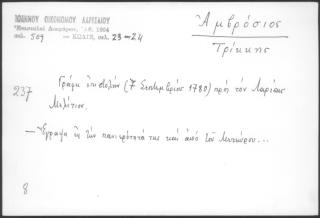 ΙΩΑΝΝΟΥ ΟΙΚΟΝΟΜΟΥ ΛΑΡΙΣΑΙΟΥ
Ἐπιστολαὶ Διαφόρων, Ἀθ. 1964
σελ. 509 — ΚΩΔΙΞ, σελ. 23-24
Ἀμβρόσιος
Τρίκκης
237
Γράφει ἐπιστολήν (7 Σεπτεμβρίου 1780) πρὸς τὸν Λαρίσης
Μελέτιον.
— Ἔγραψα ἐκ τὴν πανιερότητά της καὶ ἀπὸ τοῦ
8